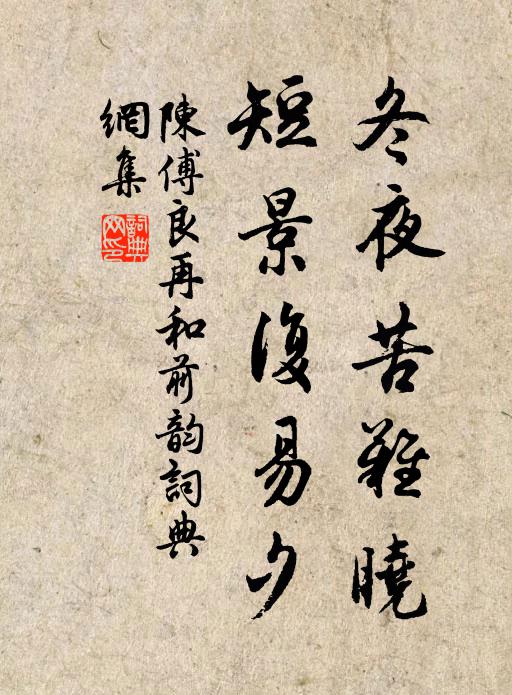 冬夜苦難曉
短景復易夕
陳傅良再和前韵詞典
網集
詞典網印